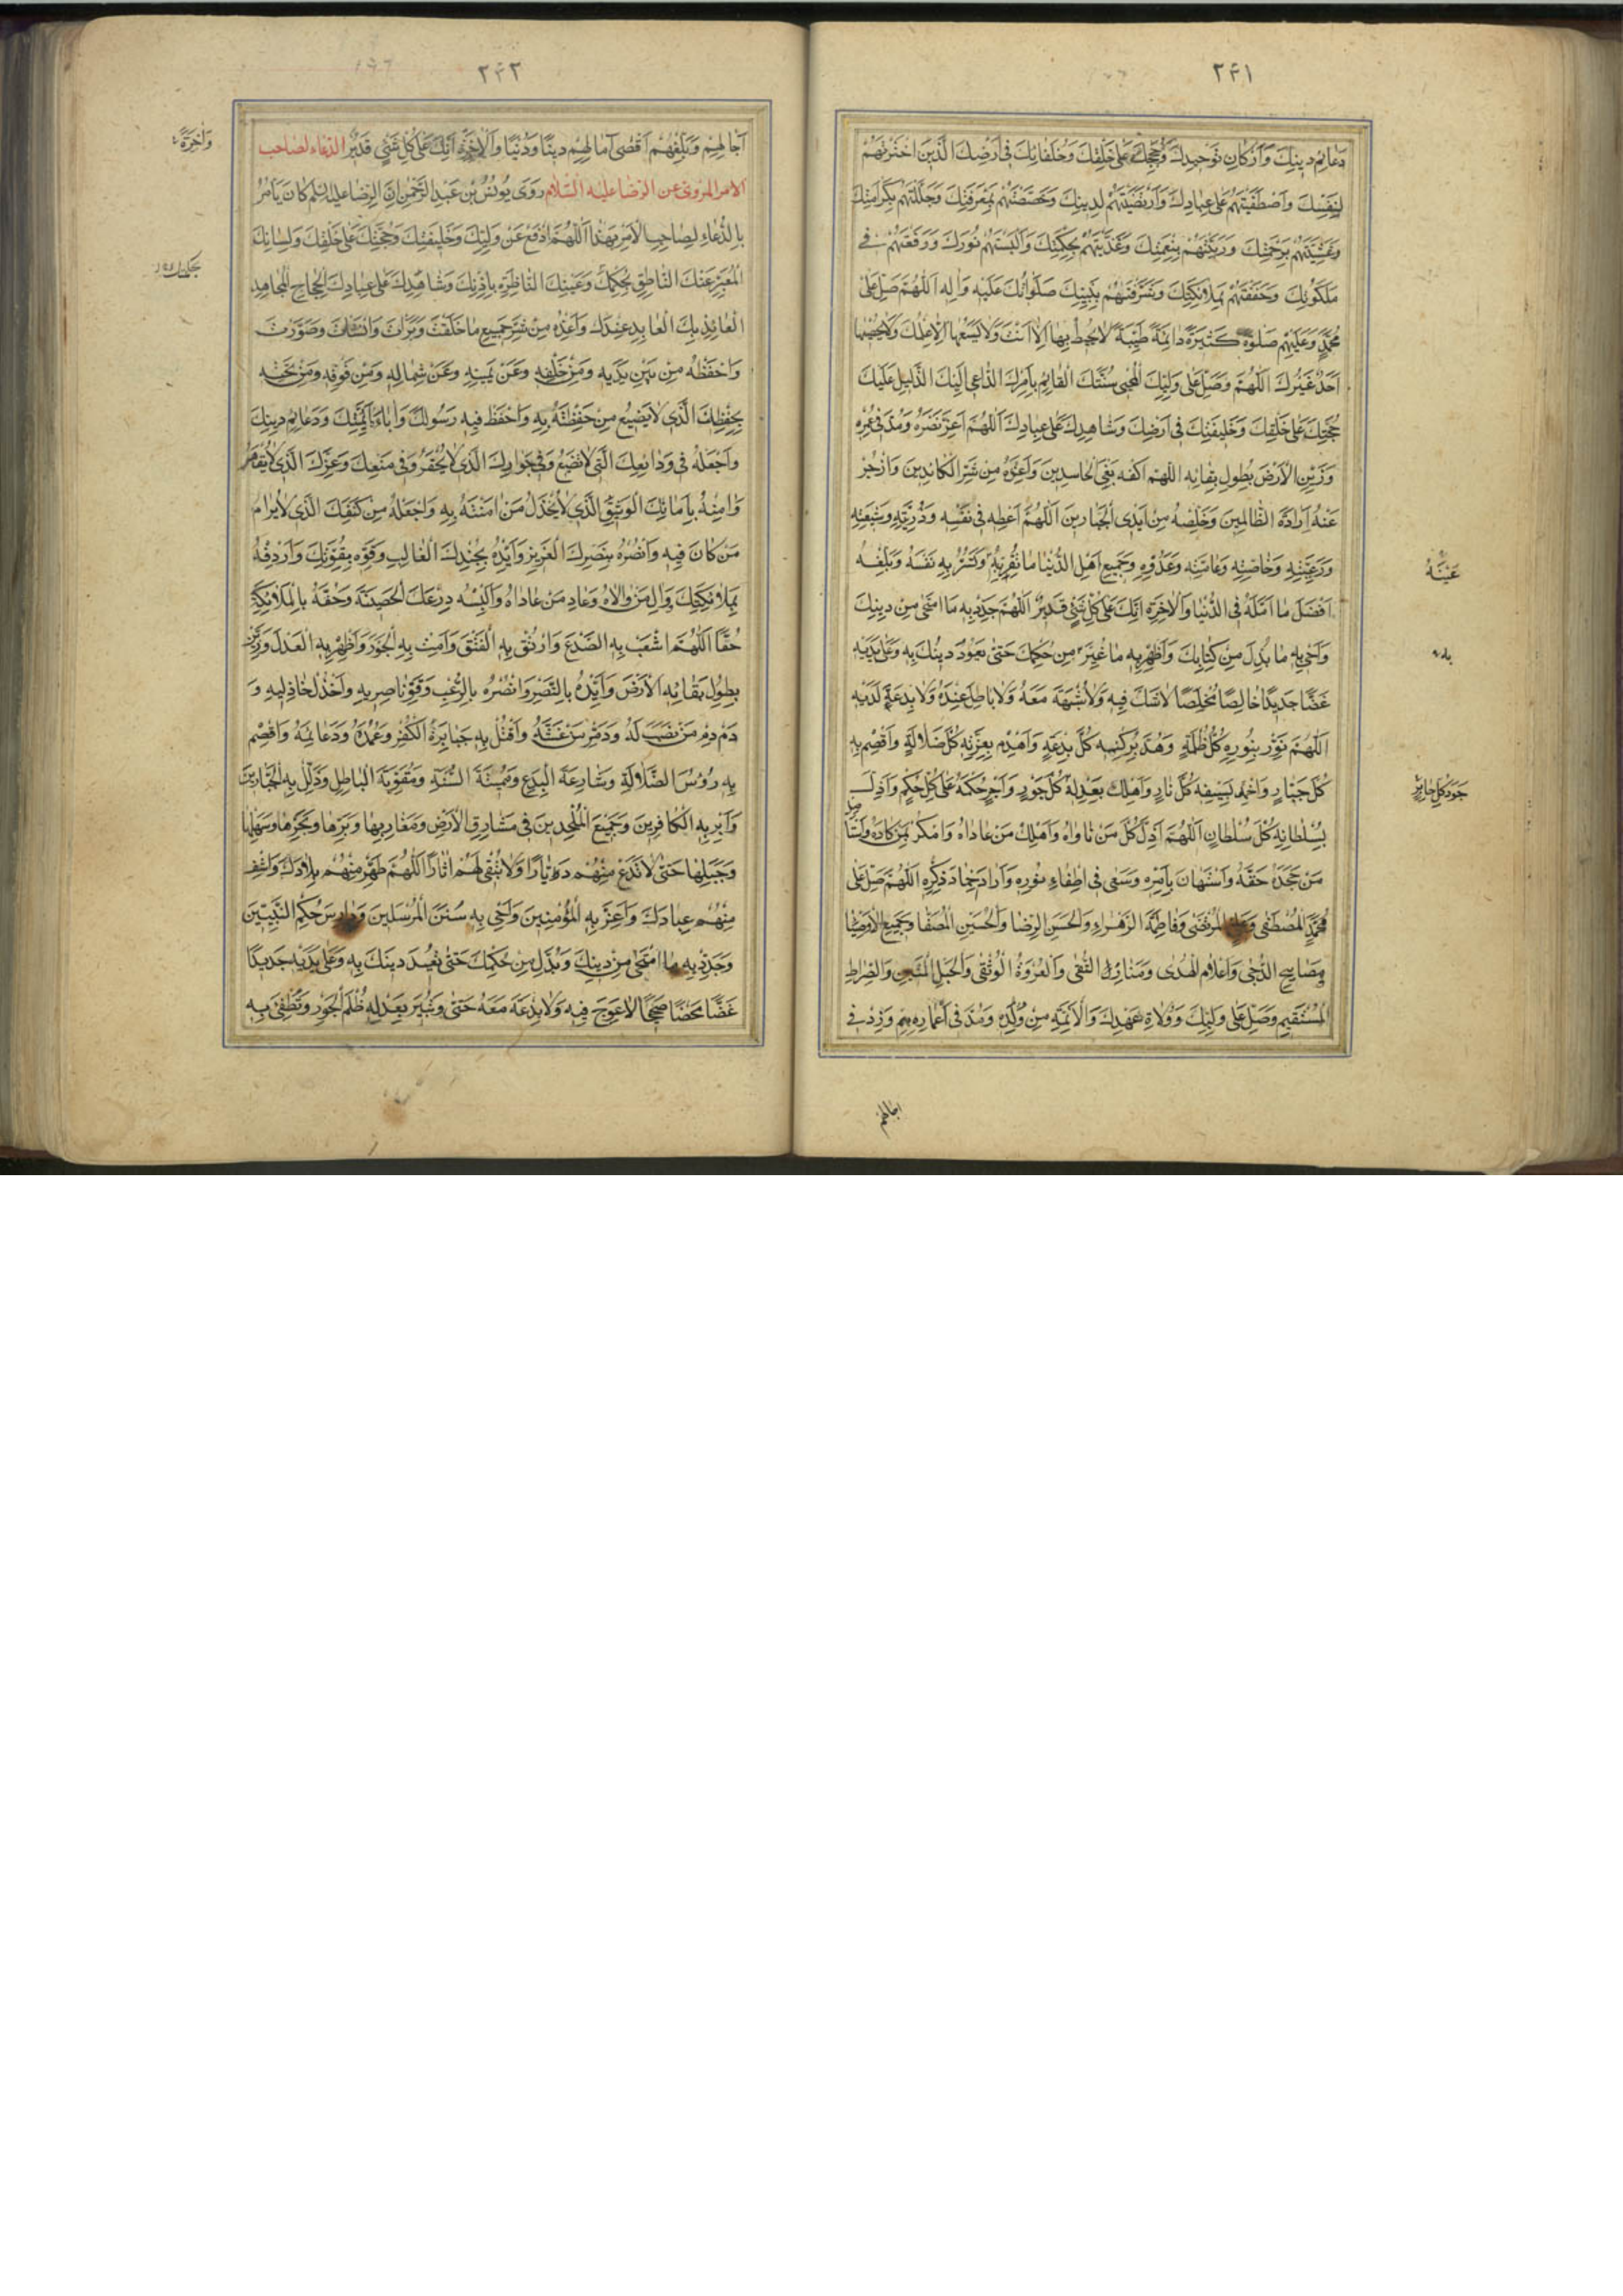 ٢٤١
دَعائِمِ دينِكَ وَاَرْكانِ تَوْحيدِكَ وَحُجَجِكَ عَلى خَلْقِكَ وَخُلَفائِكَ فى اَرْضِكَ الَّذينَ اخْتَرْتَهُمْ
لِنَفْسِكَ وَاصْطَفَيْتَهُمْ عَلى عِبادِكَ وَارْتَضَيْتَهُمْ لِدينِكَ وَخَصَصْتَهُمْ بِمَعْرِفَتِكَ وَجَلَّلْتَهُمْ بِكَرامَتِكَ
وَغَشَّيْتَهُمْ بِرَحْمَتِكَ وَرَبَّيْتَهُمْ بِنِعْمَتِكَ وَغَذَّيْتَهُمْ بِحِكْمَتِكَ وَاَلْبَسْتَهُمْ نُورَكَ وَرَفَعْتَهُمْ فى
مَلَكُوتِكَ وَحَفَفْتَهُمْ بِمَلائِكَتِكَ وَشَرَّفْتَهُمْ بِنَبِيِّكَ صَلَواتُكَ عَلَيْهِ وَالِهِ اَللّهُمَّ صَلِّ عَلى
مُحَمَّدٍ وَعَلَيْهِمْ صَلوةً كَثيرَةً دائِمَةً طَيِّبَةً لا يُحيطُ بِها اِلّا اَنْتَ وَلا يَسَعُها اِلّا عِلْمُكَ وَلا يُحْصيها
اَحَدٌ غَيْرُكَ اَللّهُمَّ وَصَلِّ عَلى وَلِيِّكَ الْمُحْيى سُنَّتَكَ الْقائِمِ بِاَمْرِكَ الدّاعى اِلَيْكَ الدَّليلِ عَلَيْكَ
حُجَّتِكَ عَلى خَلْقِكَ وَخَليفَتِكَ فى اَرْضِكَ وَشاهِدِكَ عَلى عِبادِكَ اَللّهُمَّ اَعِزَّ نَصْرَهُ وَمُدَّ فى عُمْرِهِ
وَزَيِّنِ الْاَرْضَ بِطُولِ بَقائِهِ اَللّهُمَّ اكْفِهِ بَغْىَ الْحاسِدينَ وَاَعِذْهُ مِنْ شَرِّ الْكائِدينَ وَازْجُرْ
عَنْهُ اِرادَةَ الظّالِمينَ وَخَلِّصْهُ مِنْ اَيْدِى الْجَبّارينَ اَللّهُمَّ اَعْطِهِ فى نَفْسِهِ وَذُرِّيَّتِهِ وَشيعَتِهِ
وَرَعِيَّتِهِ وَخاصَّتِهِ وَعامَّتِهِ وَعَدُوِّهِ وَجَميعِ اَهْلِ الدُّنْيا ما تُقِرُّ بِهِ وَتَسُرُّ بِهِ نَفْسَهُ وَبَلِّغْهُ
عَيْنَهُ
اَفْضَلَ ما اَمَّلَهُ فِى الدُّنْيا وَالْاخِرَةِ اِنَّكَ عَلى كُلِّ شَىْءٍ قَديرٌ اَللّهُمَّ جَدِّدْ بِهِ مَا امْتَحى مِنْ دينِكَ
وَاَحْىِ بِهِ ما بُدِّلَ مِنْ كِتابِكَ وَاَظْهِرْ بِهِ ما غُيِّرَ مِنْ حُكْمِكَ حَتّى يَعُودَ دينُكَ بِهِ وَعَلى يَدَيْهِ
غَضًّا جَديدًا خالِصًا مُخْلَصًا لا شَكَّ فيهِ وَلا شُبْهَةَ مَعَهُ وَلا باطِلَ عِنْدَهُ وَلا بِدْعَةَ لَدَيْهِ
اَللّهُمَّ نَوِّرْ بِنُورِهِ كُلَّ ظُلْمَةٍ وَهُدَّ بِرُكْنِهِ كُلَّ بِدْعَةٍ وَاهْدِمْ بِعِزَّتِهِ كُلَّ ضَلالَةٍ وَاقْصِمْ بِهِ
كُلَّ جَبّارٍ وَاَخْمِدْ بِسَيْفِهِ كُلَّ نارٍ وَاَهْلِكْ بِعَدْلِهِ كُلَّ جَوْرٍ وَاَجْرِ حُكْمَهُ عَلى كُلِّ حُكْمٍ وَاَذِلَّ
جَوْرَ كُلِّ جائِرٍ
بِسُلْطانِهِ كُلَّ سُلْطانٍ اَللّهُمَّ اَذِلَّ كُلَّ مَنْ ناواهُ وَاَهْلِكْ مَنْ عاداهُ وَامْكُرْ بِمَنْ كادَهُ وَاسْتَأْصِلْ
مَنْ جَحَدَ حَقَّهُ وَاسْتَهانَ بِاَمْرِهِ وَسَعى فى اِطْفاءِ نُورِهِ وَاَرادَ اِخْمادَ ذِكْرِهِ اَللّهُمَّ صَلِّ عَلى
مُحَمَّدٍ الْمُصْطَفى وَعَلِىٍّ الْمُرْتَضى وَفاطِمَةَ الزَّهْراءِ وَالْحَسَنِ الرِّضا وَالْحُسَيْنِ الْمُصَفّا وَجَميعِ الْاَوْصِياءِ
مَصابيحِ الدُّجى وَاَعْلامِ الْهُدى وَمَنارِ التُّقى وَالْعُرْوَةِ الْوُثْقى وَالْحَبْلِ الْمَتينِ وَالصِّراطِ
الْمُسْتَقيمِ وَصَلِّ عَلى وَلِيِّكَ وَوُلاةِ عَهْدِكَ وَالْاَئِمَّةِ مِنْ وُلْدِهِ وَمُدَّ فى اَعْمارِهِمْ وَزِدْ فى
اجالهم
٢٤٢
اجالِهِمْ وَبَلِّغْهُمْ اَقْصى امالِهِمْ دينًا وَدُنْيًا وَالْاخِرَةِ اِنَّكَ عَلى كُلِّ شَىْءٍ قَديرٌ الدّعاء لصاحب
وَاخِرَةً
الامر المروىّ عن الرّضا عليه السّلام رَوى يُونُسُ بْنُ عَبْدِ الرَّحْمنِ اَنَّ الرِّضا عليه السلم كانَ يَأْمُرُ
بِالدُّعاءِ لِصاحِبِ الْاَمْرِ بِهذا اَللّهُمَّ ادْفَعْ عَنْ وَلِيِّكَ وَخَليفَتِكَ وَحُجَّتِكَ عَلى خَلْقِكَ وَلِسانِكَ
الْمُعَبِّرِ عَنْكَ النّاطِقِ بِحُكْمِكَ وَعَيْنِكَ النّاظِرَةِ بِاِذْنِكَ وَشاهِدِكَ عَلى عِبادِكَ الْجَحْجاحِ الْمُجاهِدِ
الْعائِذِ بِكَ الْعابِدِ عِنْدَكَ وَاَعِذْهُ مِنْ شَرِّ جَميعِ ما خَلَقْتَ وَبَرَأْتَ وَاَنْشَأْتَ وَصَوَّرْتَ
وَاحْفَظْهُ مِنْ بَيْنِ يَدَيْهِ وَمِنْ خَلْفِهِ وَعَنْ يَمينِهِ وَعَنْ شِمالِهِ وَمِنْ فَوْقِهِ وَمِنْ تَحْتِهِ
بِحِفْظِكَ الَّذى لا يَضيعُ مَنْ حَفِظْتَهُ بِهِ وَاحْفَظْ فيهِ رَسُولَكَ وَاباءَهُ اَئِمَّتَكَ وَدَعائِمَ دينِكَ
وَاجْعَلْهُ فى وَدائِعِكَ الَّتى لا تَضيعُ وَفى جِوارِكَ الَّذى لا يُخْفَرُ وَفى مَنْعِكَ وَعِزِّكَ الَّذى لا يُقْهَرُ
وَامِنْهُ بِاَمانِكَ الْوَثيقِ الَّذى لا يُخْذَلُ مَنْ امَنْتَهُ بِهِ وَاجْعَلْهُ مِنْ كَنَفِكَ الَّذى لا يُرامُ
مَنْ كانَ فيهِ وَانْصُرْهُ بِنَصْرِكَ الْعَزيزِ وَاَيِّدْهُ بِجُنْدِكَ الْغالِبِ وَقَوِّهِ بِقُوَّتِكَ وَاَرْدِفْهُ
بِمَلائِكَتِكَ وَوالِ مَنْ والاهُ وَعادِ مَنْ عاداهُ وَاَلْبِسْهُ دِرْعَكَ الْحَصينَةَ وَحُفَّهُ بِالْمَلائِكَةِ
حُفًّا اَللّهُمَّ اشْعَبْ بِهِ الصَّدْعَ وَارْتُقْ بِهِ الْفَتْقَ وَاَمِتْ بِهِ الْجَوْرَ وَاَظْهِرْ بِهِ الْعَدْلَ وَزَيِّنْ
بِطُولِ بَقائِهِ الْاَرْضَ وَاَيِّدْهُ بِالنَّصْرِ وَانْصُرْهُ بِالرُّعْبِ وَقَوِّ ناصِريهِ وَاخْذُلْ خاذِليهِ وَ
دَمْدِمْ مَنْ نَصَبَ لَهُ وَدَمِّرْ مَنْ غَشَّهُ وَاقْتُلْ بِهِ جَبابِرَةَ الْكُفْرِ وَعُمُدَهُ وَدَعائِمَهُ وَاقْصِمْ
بِهِ رُؤُسَ الضَّلالَةِ وَشارِعَةَ الْبِدَعِ وَمُميتَةَ السُّنَّةِ وَمُقَوِّيَةَ الْباطِلِ وَذَلِّلْ بِهِ الْجَبّارينَ
وَاَبِرْ بِهِ الْكافِرينَ وَجَميعَ الْمُلْحِدينَ فى مَشارِقِ الْاَرْضِ وَمَغارِبِها وَبَرِّها وَبَحْرِها وَسَهْلِها
وَجَبَلِها حَتّى لا تَدَعَ مِنْهُمْ دَيّارًا وَلا تُبْقِىَ لَهُمْ اثارًا اَللّهُمَّ طَهِّرْ مِنْهُمْ بِلادَكَ وَاشْفِ
مِنْهُمْ عِبادَكَ وَاَعِزَّ بِهِ الْمُؤْمِنينَ وَاَحْىِ بِهِ سُنَنَ الْمُرْسَلينَ وَدارِسَ حُكْمِ النَّبِيّينَ
وَجَدِّدْ بِهِ مَا امْتَحى مِنْ دينِكَ وَبُدِّلَ مِنْ حُكْمِكَ حَتّى تُعيدَ دينَكَ بِهِ وَعَلى يَدَيْهِ جَديدًا
غَضًّا مَحْضًا صَحيحًا لا عِوَجَ فيهِ وَلا بِدْعَةَ مَعَهُ حَتّى وَتُنيرَ بِعَدْلِهِ ظُلَمَ الْجَوْرِ وَتُطْفِئَ بِهِ